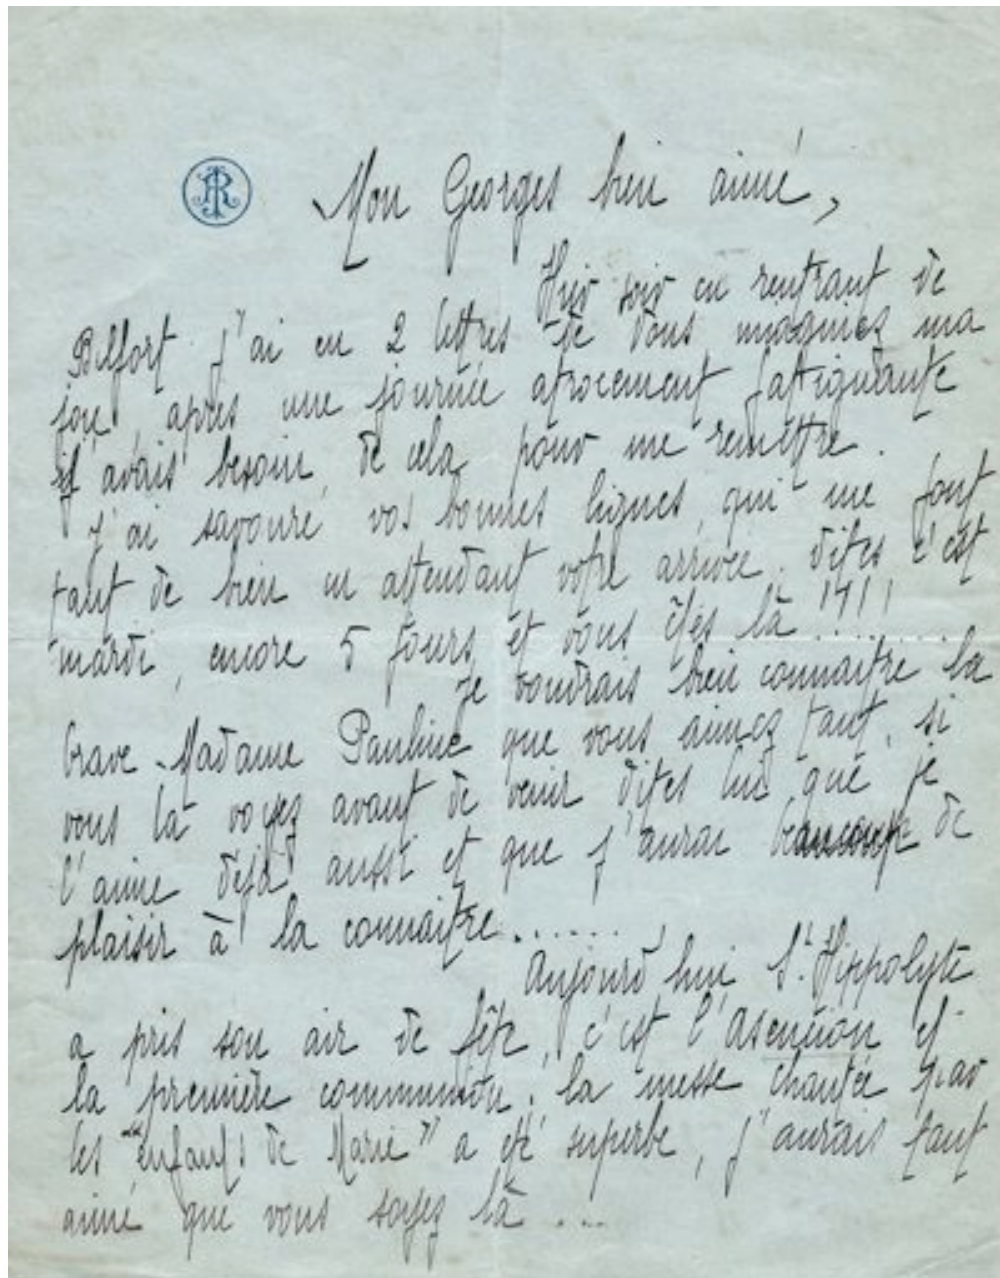 Mon Georges bien aimé,
Hier soir en rentrant de
Belfort j'ai eu 2 lettres de vous imaginez ma
joie, après une journée atrocement fattiguante
j'avais besoin de cela pour me remettre.
J'ai savouré vos bonnes lignes, qui me font
tant de bien en attendant votre arrivée. dites c'est
mardi, encore 5 jours et vous êtes là !!!!........
Je voudrais bien connaitre la
brave Madame Pauline que vous aimez tant, si
vous la voyez avant de venir dites lui que je
l'aime déjà aussi et que j'aurai beaucoup de
plaisir à la connaitre......
Aujourd'hui St. Hippolyte
a pris son air de fête, c'est l'Asention et
la première communion. la messe chantée par
les "enfants de Marie" a été superbe, j'aurais tant
aimé que vous soyez là ...